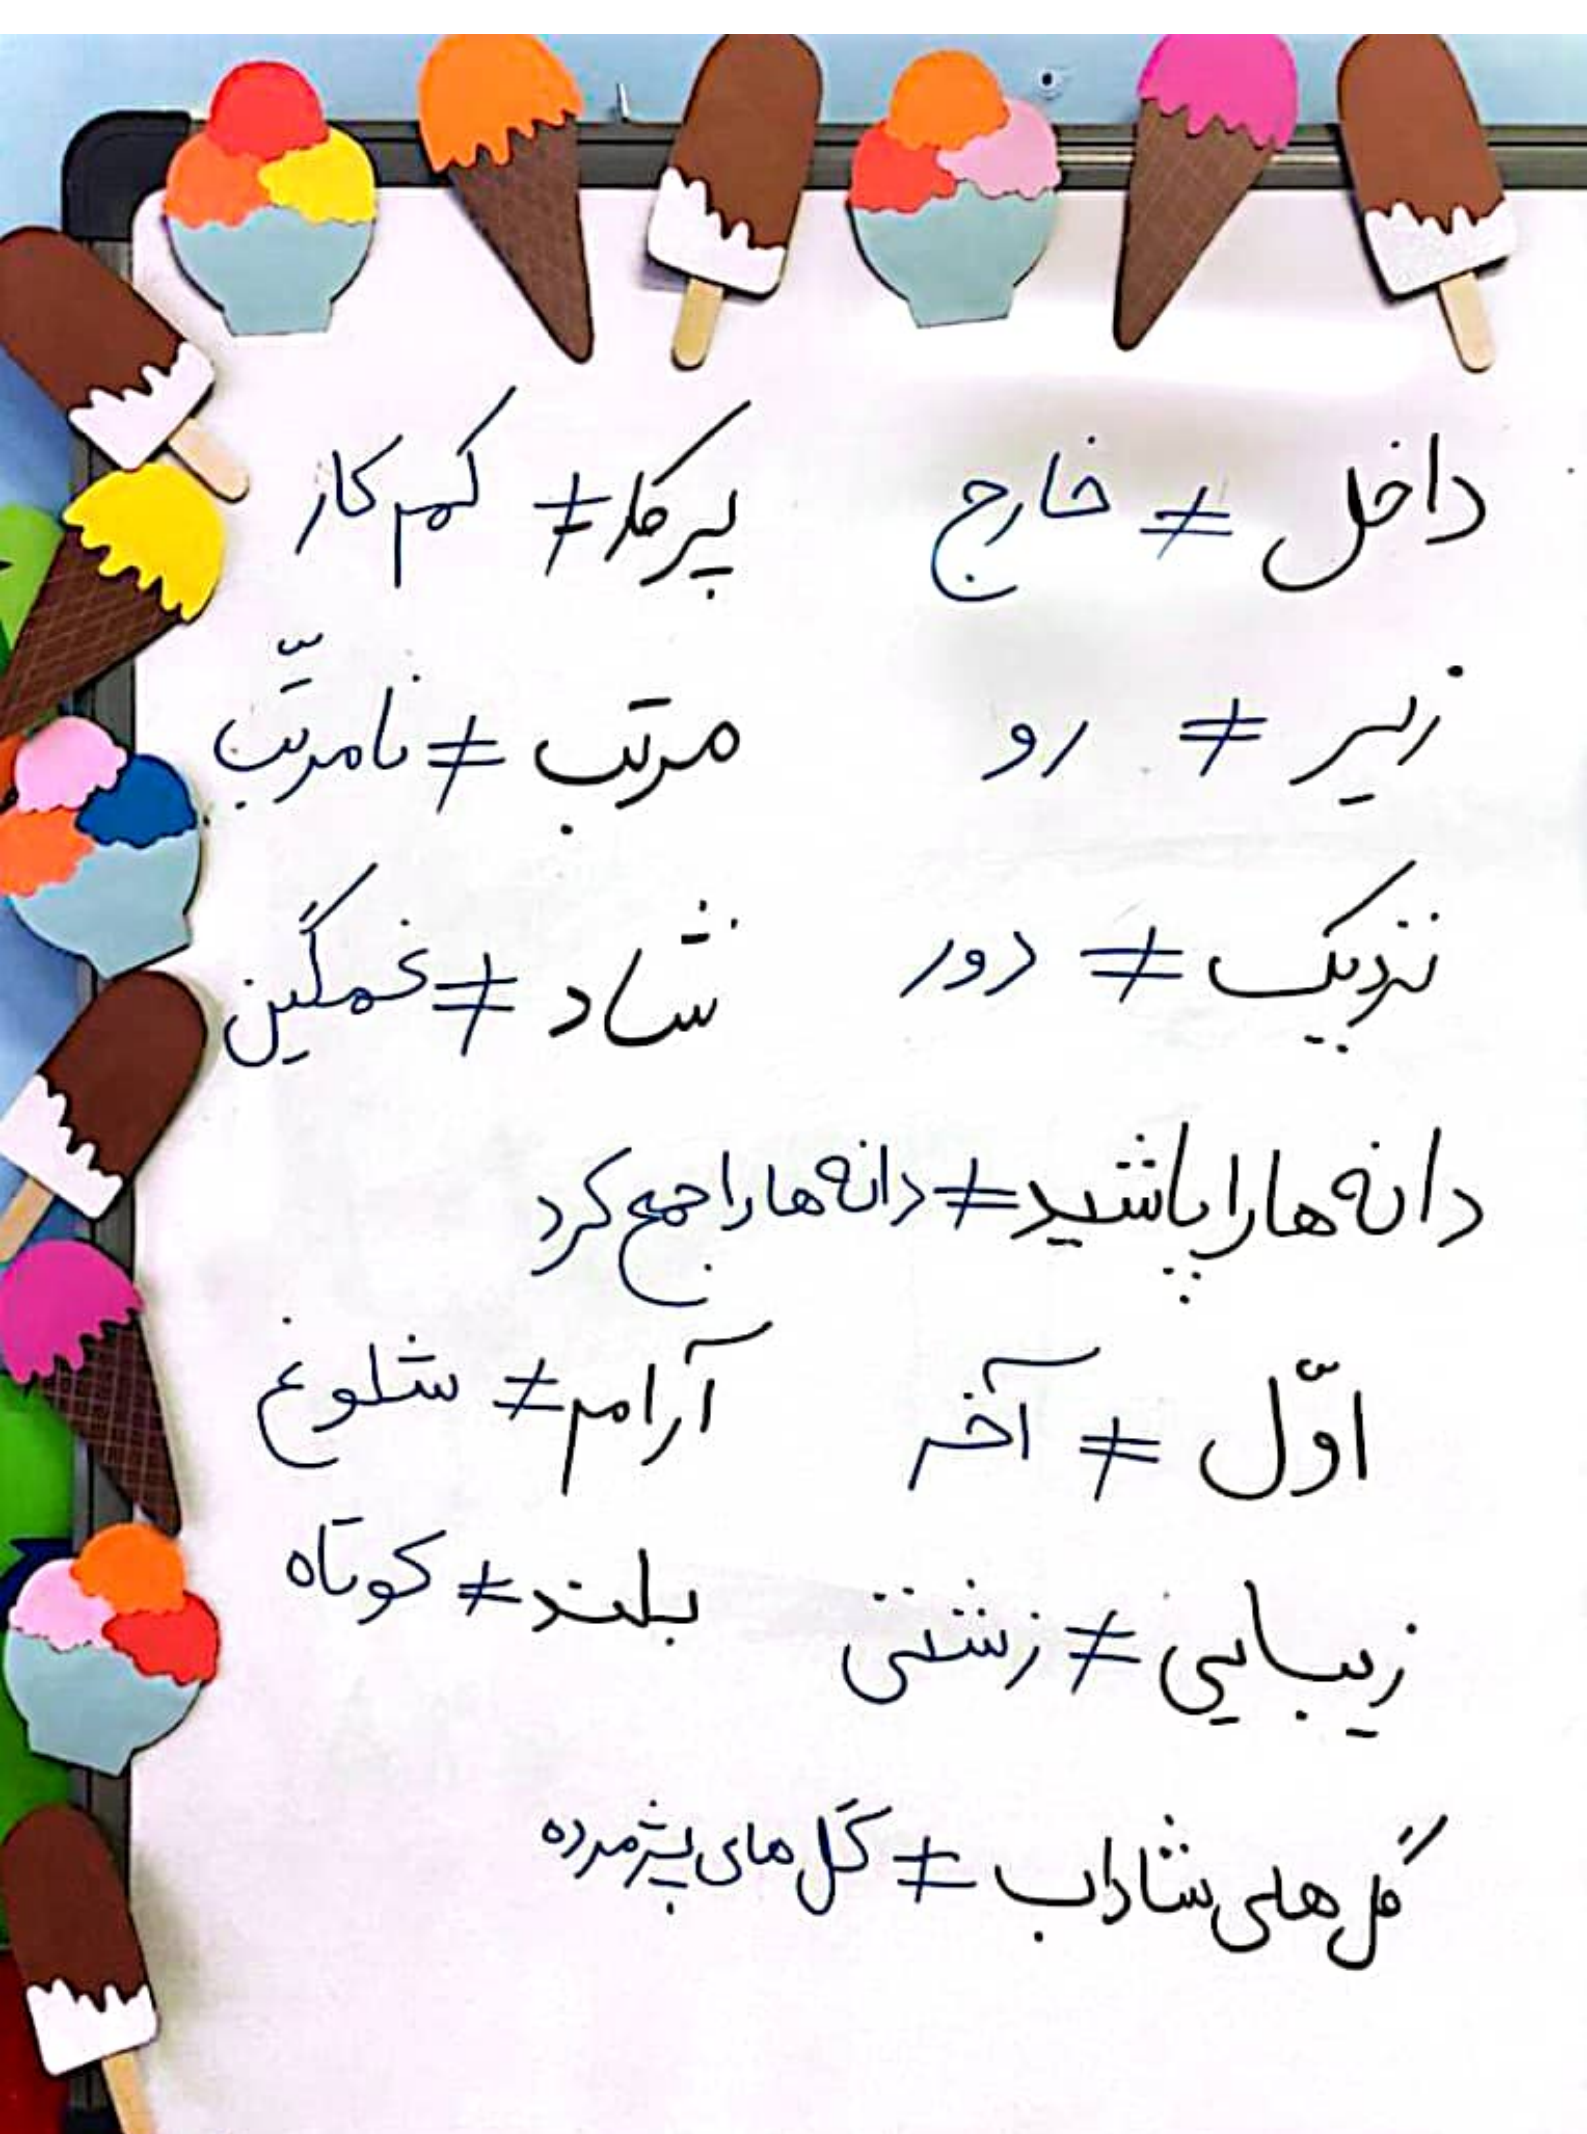 داخل ≠ خارج    پرکار ≠ کم کار
زیر ≠ رو    مرتب ≠ نامرتّب
نزدیک ≠ دور    شاد ≠ غمگین
دانه ها را پاشید ≠ دانه ها را جمع کرد
اوّل ≠ آخر    آرام ≠ شلوغ
زیبایی ≠ زشتی    بلند ≠ کوتاه
گل های شاداب ≠ گل های پژمرده